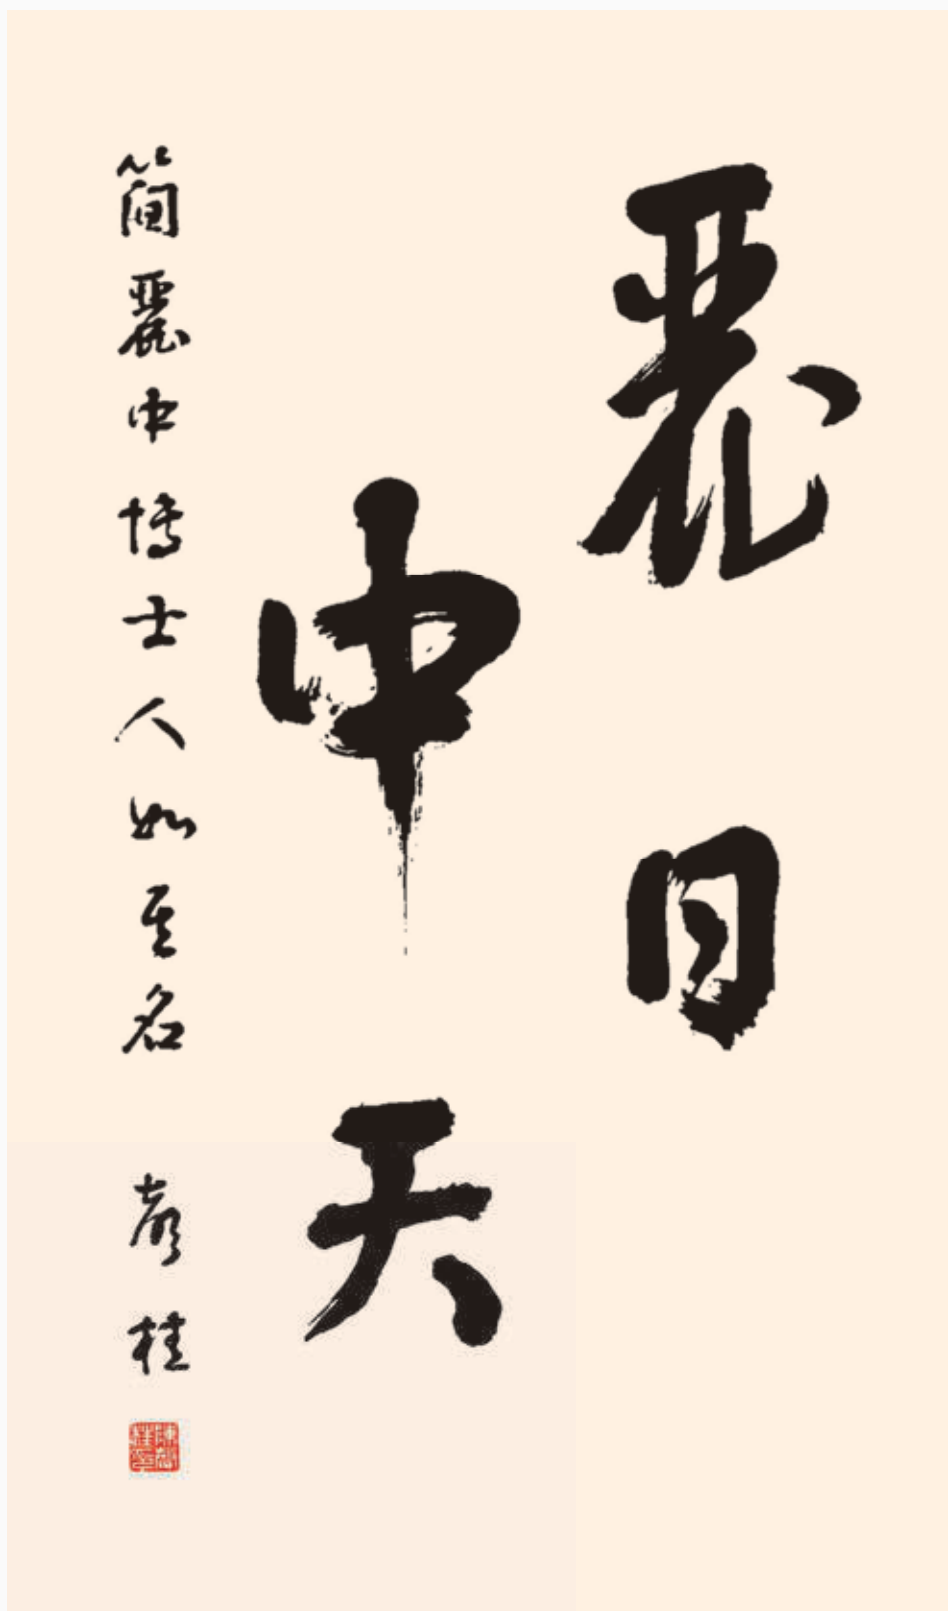 麗日
中天
簡麗中博士人如其名 彥桂